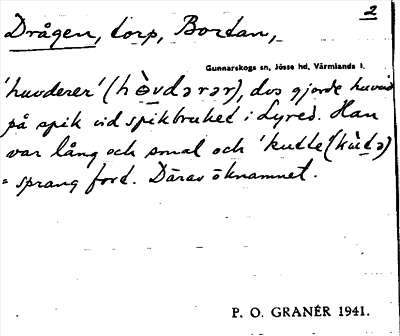 2
Drågen, torp, Bortan,
Gunnarskogs sn, Jösse hd, Värmlands l.
'huvderer' (hə̀vdərər), dvs gjorde huvud
på spik vid spikbruket i Lyred. Han
var lång och smal och 'kutte' (kùtə)
= sprang fort. Därav öknamnet.
P. O. GRANÉR 1941.